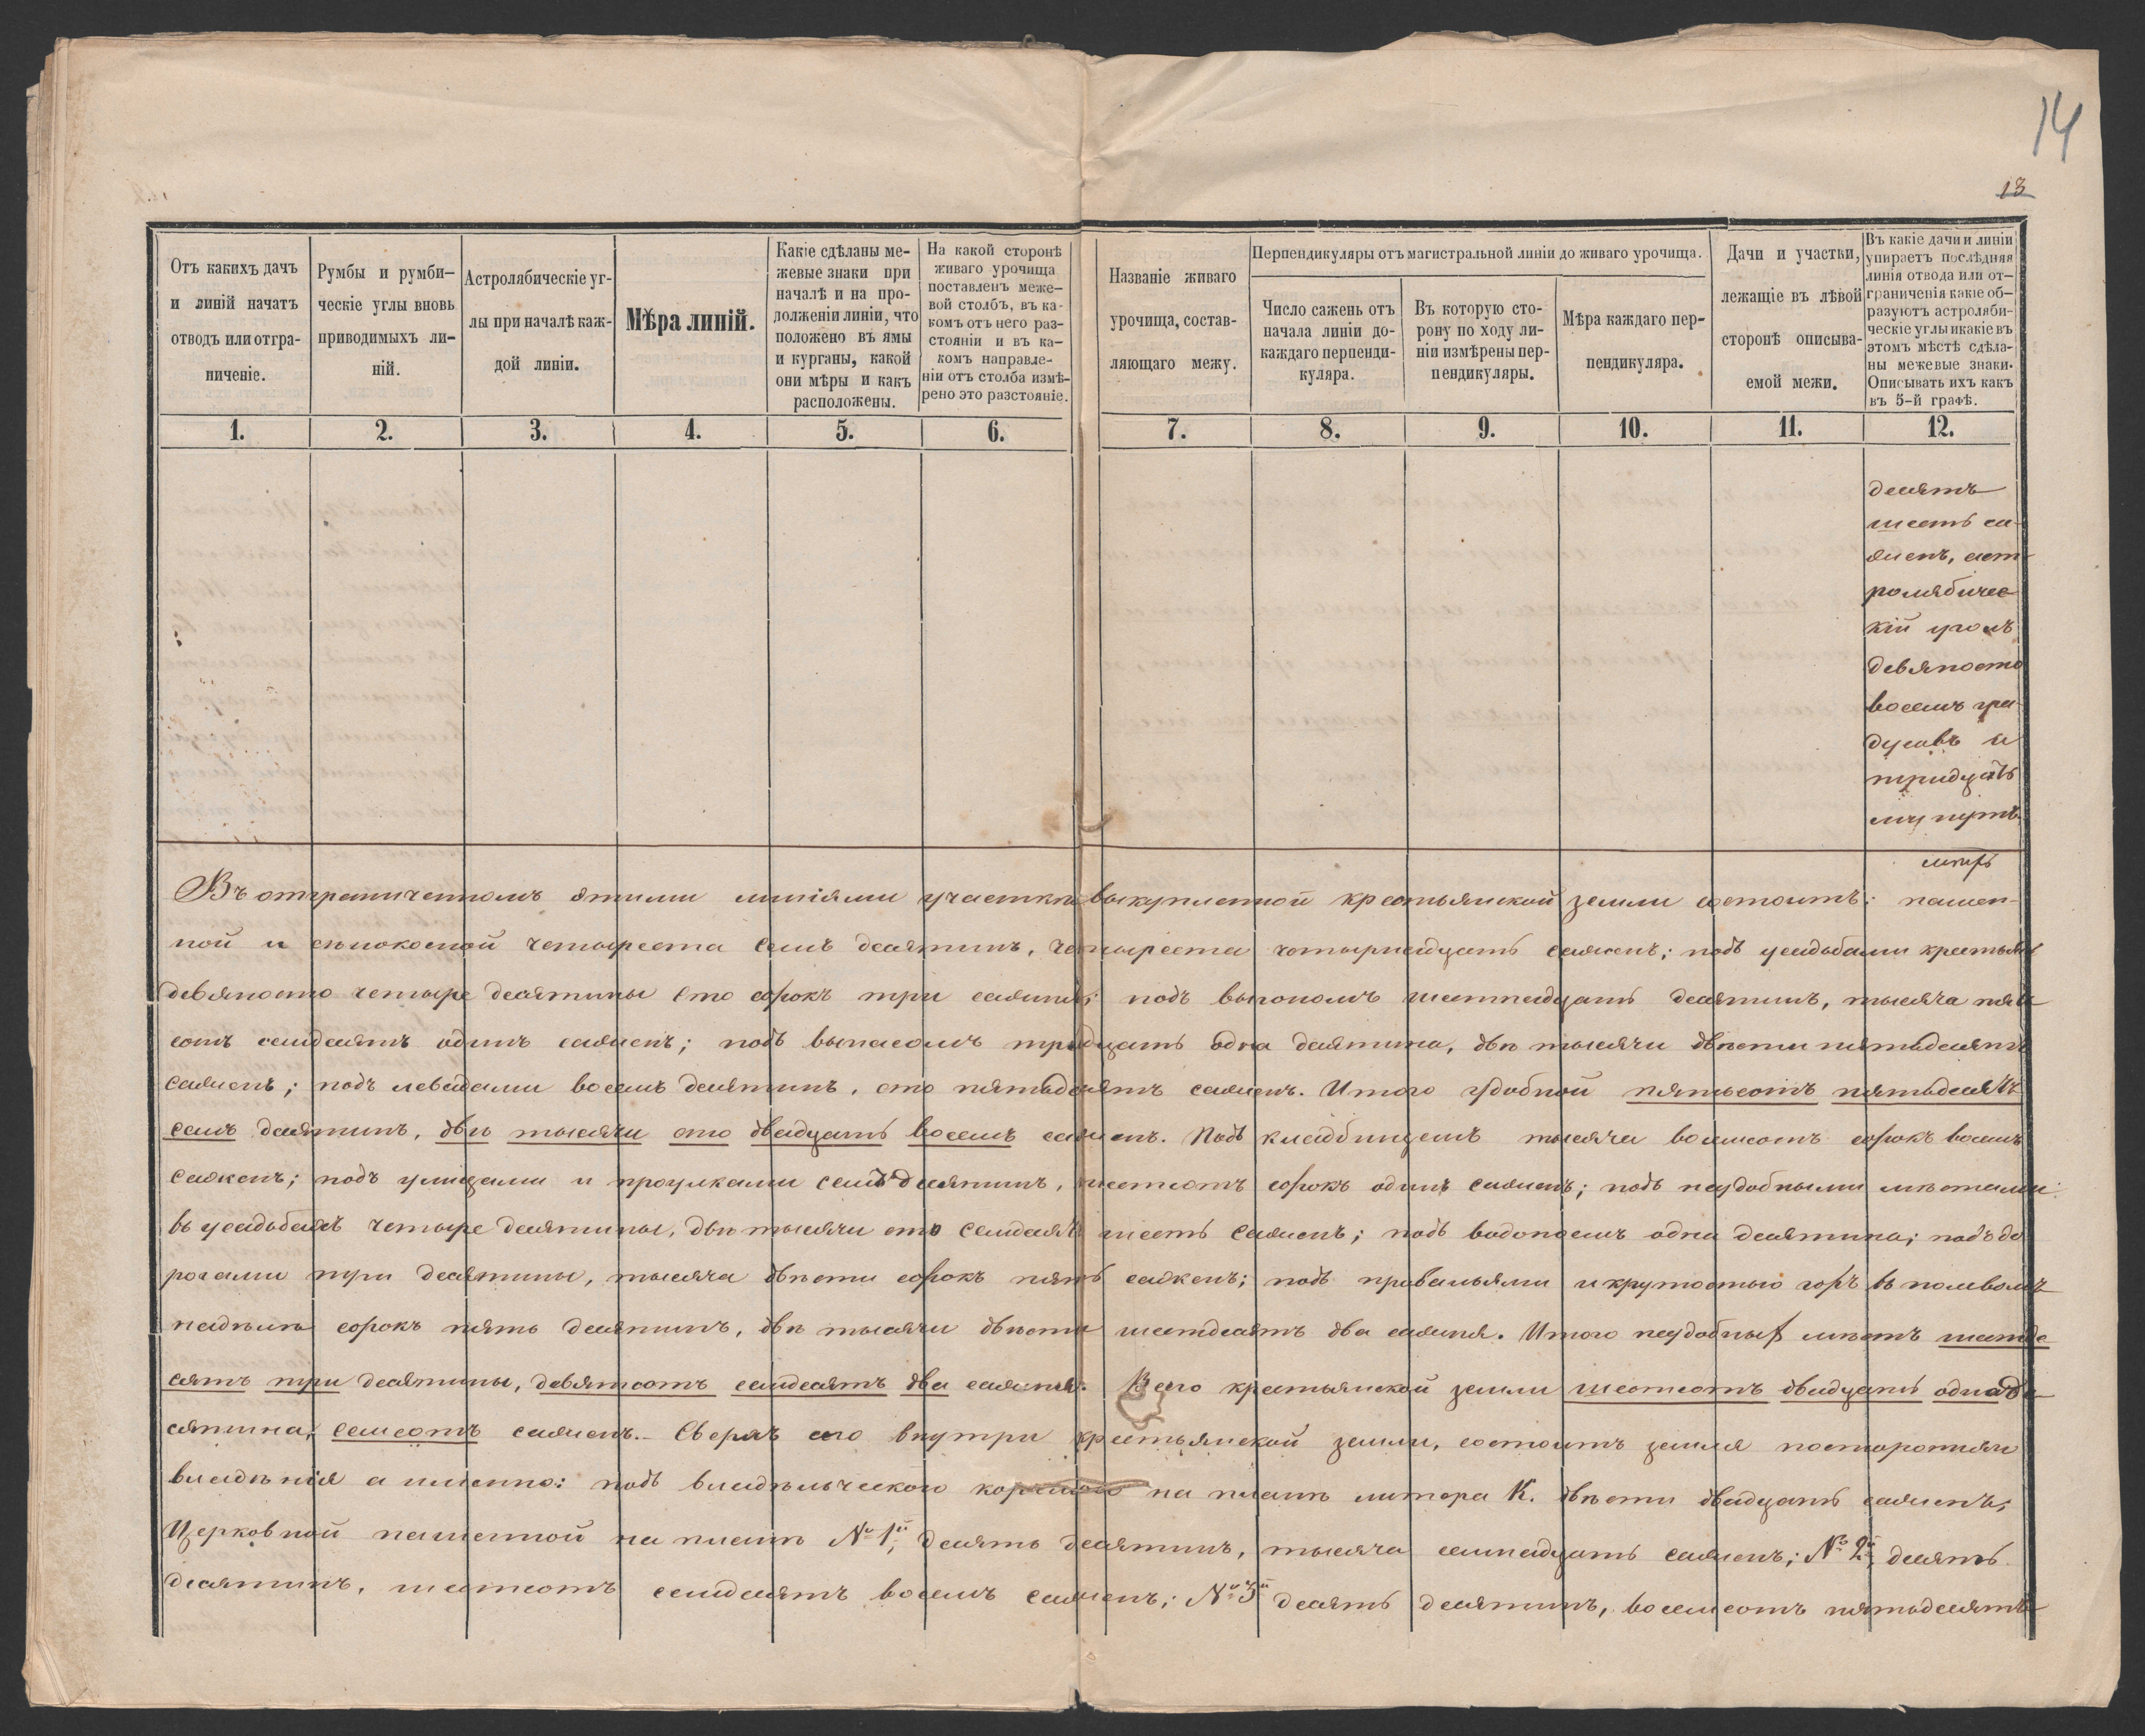 14
13
Отъ какихъ дачъ
и линій начатъ
отводъ или отгра-
ниченіе.
Румбы и румби-
ческіе углы вновь
приводимыхъ ли-
ній.
Астролябическіе уг-
лы при началѣ каж-
дой линіи.
Мѣра линій.
Какіе сдѣланы ме-
жевые знаки при
началѣ и на про-
долженіи линіи, что
положено въ ямы
и курганы, какой
они мѣры и какъ
расположены.
На какой сторонѣ
живаго урочища
поставленъ меже-
вой столбъ, въ ка-
комъ отъ него раз-
стояніи и въ ка-
комъ направле-
ніи отъ столба измѣ-
рено это разстояніе.
Названіе живаго
урочища, состав-
ляющаго межу.
Перпендикуляры отъ магистральной линіи до живаго урочища.
Число сажень отъ
начала линіи до-
каждаго перпенди-
куляра.
Въ которую сто-
рону по ходу ли-
ніи измѣрены пер-
пендикуляры.
Мѣра каждаго пер-
пендикуляра.
Дачи и участки,
лежащіе въ лѣвой
сторонѣ описыва-
емой межи.
Въ какіе дачи и линіи
упираетъ послѣдняя
линія отвода или от-
граниченія какіе об-
разуютъ астроляби-
ческіе углы икакіе въ
этомъ мѣстѣ сдѣла-
ны межевые знаки.
Описывать ихъ какъ
въ 5-й графѣ.
1. 2. 3. 4. 5. 6. 7. 8. 9. 10. 11. 12.
десятъ
шесть са-
женъ, аст-
ролябичес-
кій уголъ
девяносто
восемъ гра-
дусовъ и
тридцать
минутъ.
Въ отграниченномъ этими линіями участкѣ выкупленной крестьянской земли состоитъ: пашен-
ной и сѣнокосной четыреста семъ десятинъ, четыреста четырнадцать саженъ; подъ усадьбами крестьянъ
девяносто четыре десятины сто сорокъ три сажени; подъ выгономъ шестнадцать десятинъ, тысяча пять
сотъ семдесятъ одинъ саженъ; подъ выпасомъ тридцать одна десятина, двѣ тысячи двѣсти пятьдесятъ
саженъ; подъ левадами восемъ десятинъ, сто пятьдесятъ саженъ. Итого удобной пятьсотъ пятьдесятъ
семъ десятинъ, двѣ тысячи сто двадцать восемъ саженъ. Подъ кладбищемъ тысяча восемсотъ сорокъ восемъ
саженъ; подъ улицами и проулками семъ десятинъ, шестсотъ сорокъ одинъ саженъ; подъ неудобными мѣстами
въ усадьбахъ четыре десятины, двѣ тысячи сто семдесятъ шесть саженъ; подъ водопоемъ одна десятина; подъ до
рогами три десятины, тысяча двѣсти сорокъ пять саженъ; подъ провальями и крутостью горъ въ полевомъ
надѣлѣ сорокъ пять десятинъ, двѣ тысячи двѣсти шестдесятъ два сажня. Итого неудобныхъ мѣстъ шестде
сятъ три десятины, девятсотъ семдесятъ два сажня. Всего крестьянской земли шестсотъ двадцать одна де
сятина, семсотъ саженъ.- Сверхъ сего внутри крестьянской земли, состоитъ земля посторонняго
владѣнія а именно: подъ владѣльческою на планѣ литера К. двѣсти двадцать саженъ;
Церковной пашенной на планѣ № 1й, десять десятинъ, тысяча семнадцать саженъ; № 2й, десять
десятинъ, шестсотъ семдесятъ восемъ саженъ; № 3й десять десятинъ, восемсотъ пятьдесятъ